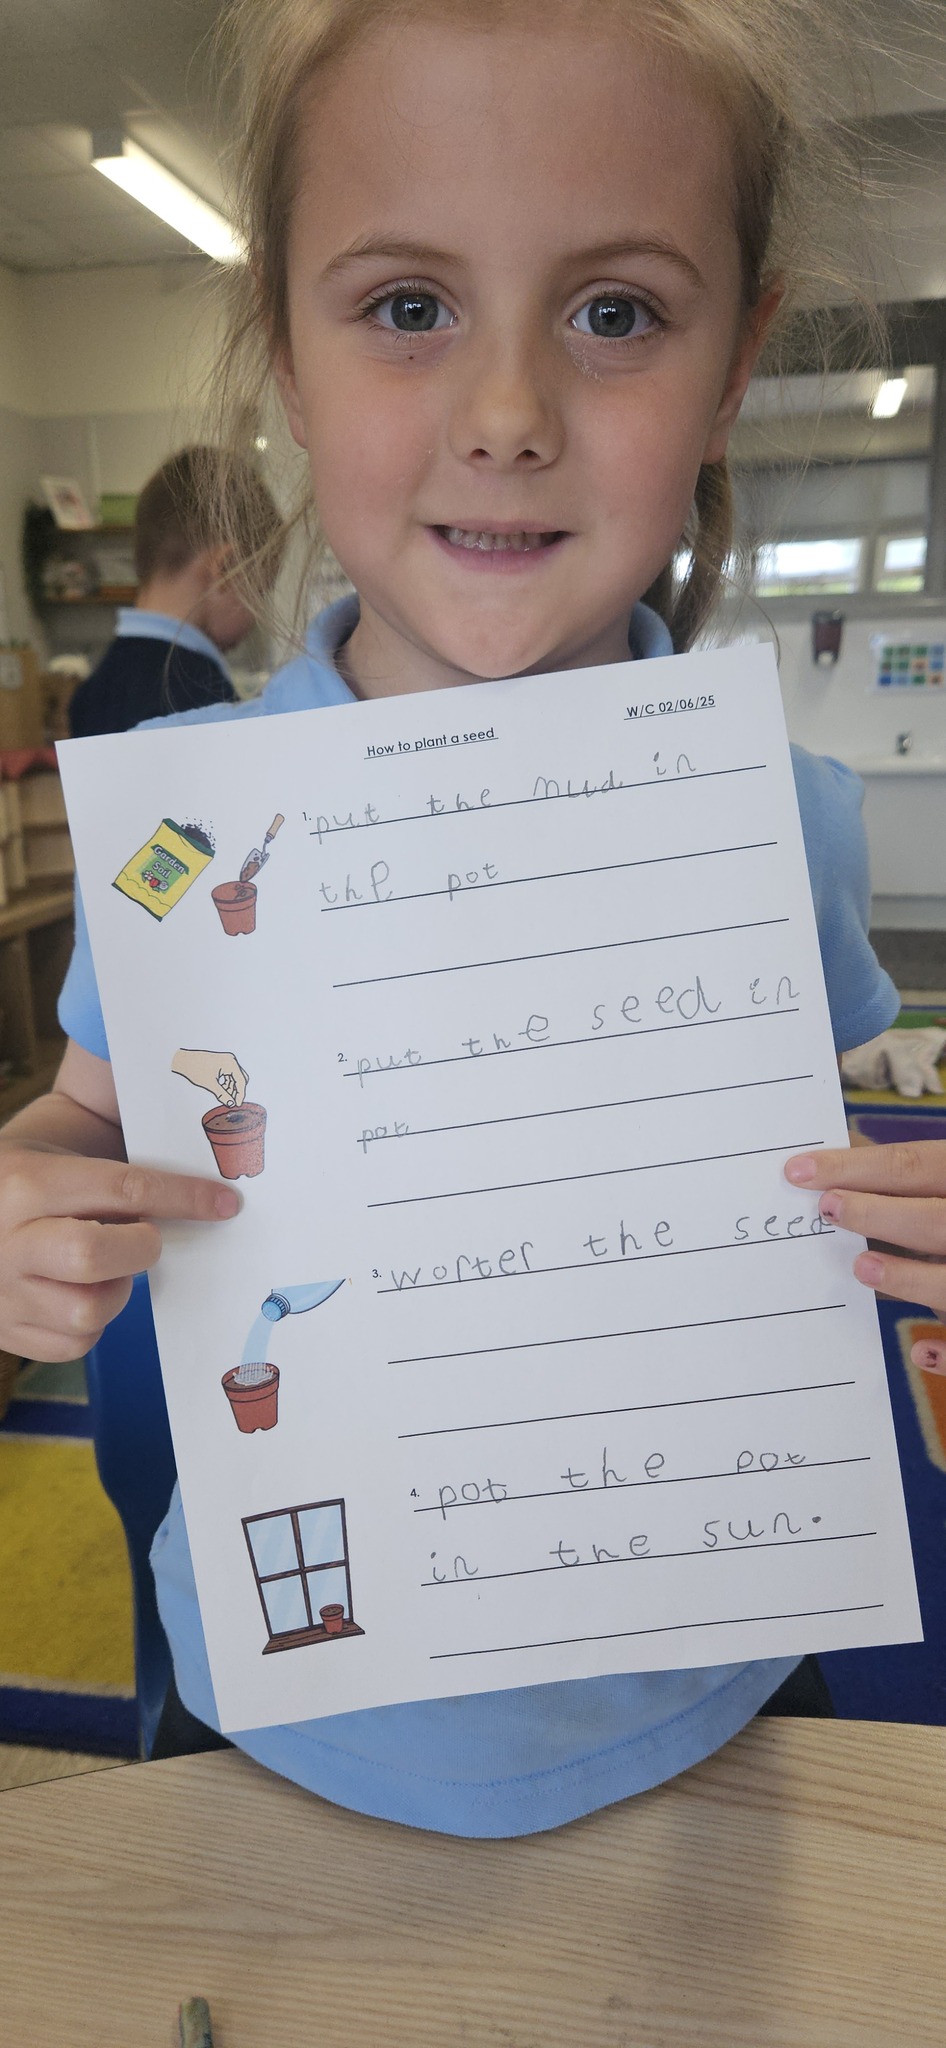 How to plant a seed
W/C 02/06/25
Garden
Soil
1. put the mud in
the pot
2. put the seed in
pot
3. worter the seed
4. pot the pot
in the sun.